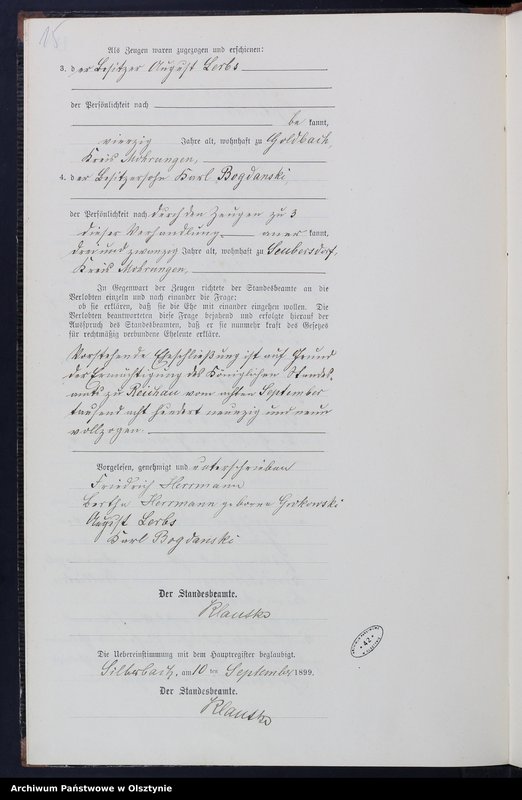 15
Als Zeugen waren zugezogen und erschienen:
3. der Besitzer August Lerbs
der Persönlichkeit nach
be kannt,
vierzig Jahre alt, wohnhaft zu Goldbach,
Kreis Mohrungen,
4. der Besitzersohn Karl Bogdanski
der Persönlichkeit nach durch den Zeugen zu 3
dieser Verhandlung aner kannt,
drei und zwanzig Jahre alt, wohnhaft zu Seubersdorf,
Kreis Mohrungen,
In Gegenwart der Zeugen richtete der Standesbeamte an die
Verlobten einzeln und nach einander die Frage:
ob sie erklären, daß sie die Ehe mit einander eingehen wollen. Die
Verlobten beantworteten diese Frage bejahend und erfolgte hierauf der
Ausspruch des Standesbeamten, daß er sie nunmehr kraft des Gesetzes
für rechtmäßig verbundene Eheleute erkläre.
Vorstehende Eheschließung ist auf Grund
der Ermächtigung des Königlichen Standes-
amts zu Reichau vom achten September
tausend acht hundert neunzig und neun
vollzogen.
Vorgelesen, genehmigt und unterschrieben
Friedrich Herrmann
Bertha Herrmann geborene
August Lerbs
Karl Bogdanski
Der Standesbeamte.
Klautke
Die Uebereinstimmung mit dem Hauptregister beglaubigt.
Silberbach, am 10 ten September 1899.
Der Standesbeamte.
Klautke
* 42 *
Archiwum Państwowe w Olsztynie